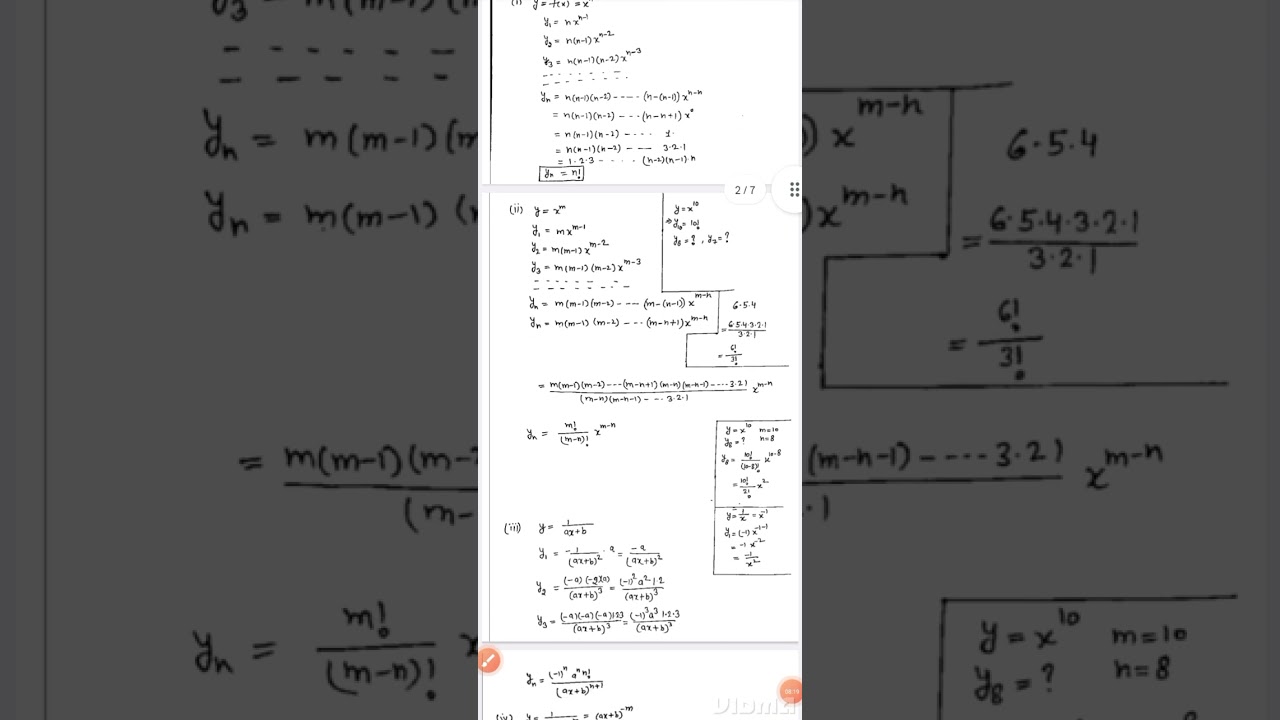 (i) y = f(x) = xⁿ
y₁ = n xⁿ⁻¹
y₂ = n(n-1) xⁿ⁻²
y₃ = n(n-1)(n-2) xⁿ⁻³
yₙ = n(n-1)(n-2) ----- (n-(n-1)) xⁿ⁻ⁿ
= n(n-1)(n-2) --- (n-n+1) x⁰
= n(n-1)(n-2) ---- 1.
= n(n-1)(n-2) --- 3.2.1
= 1.2.3 ----- (n-2)(n-1).n
yₙ = n!
2 / 7
(ii) y = xᵐ
y₁ = m xᵐ⁻¹
y₂ = m(m-1) xᵐ⁻²
y₃ = m(m-1)(m-2) xᵐ⁻³
yₙ = m(m-1)(m-2) ----- (m-(n-1)) xᵐ⁻ⁿ
yₙ = m(m-1)(m-2) --- (m-n+1) xᵐ⁻ⁿ
y = x¹⁰
⇒ y₁₀ = 10!
y₈ = ? , y₂ = ?
6.5.4
= 6.5.4.3.2.1 / 3.2.1
= 6! / 3!
= m(m-1)(m-2)---(m-n+1)(m-n)(m-n-1)----3.2.1 / (m-n)(m-n-1)----3.2.1 xᵐ⁻ⁿ
yₙ = m! / (m-n)! xᵐ⁻ⁿ
y = x¹⁰ m=10
y₈ = ? n=8
y₈ = 10! / (10-8)! x¹⁰⁻⁸
= 10! / 2! x²
y = 1/x = x⁻¹
y₁ = (-1) x⁻¹⁻¹
= -1 x⁻²
= -1 / x²
(iii) y = 1 / ax+b
y₁ = -1 / (ax+b)² . a = -a / (ax+b)²
y₂ = (-a)(-2)(a) / (ax+b)³ = (-1)² a² 1.2 / (ax+b)³
y₃ = (-a)(-a)(-a)1.2.3 / (ax+b)³ = (-1)³ a³ 1.2.3 / (ax+b)³
yₙ = (-1)ⁿ aⁿ n! / (ax+b)ⁿ⁺¹
(iv) y = 1 = (ax+b)⁻ᵐ